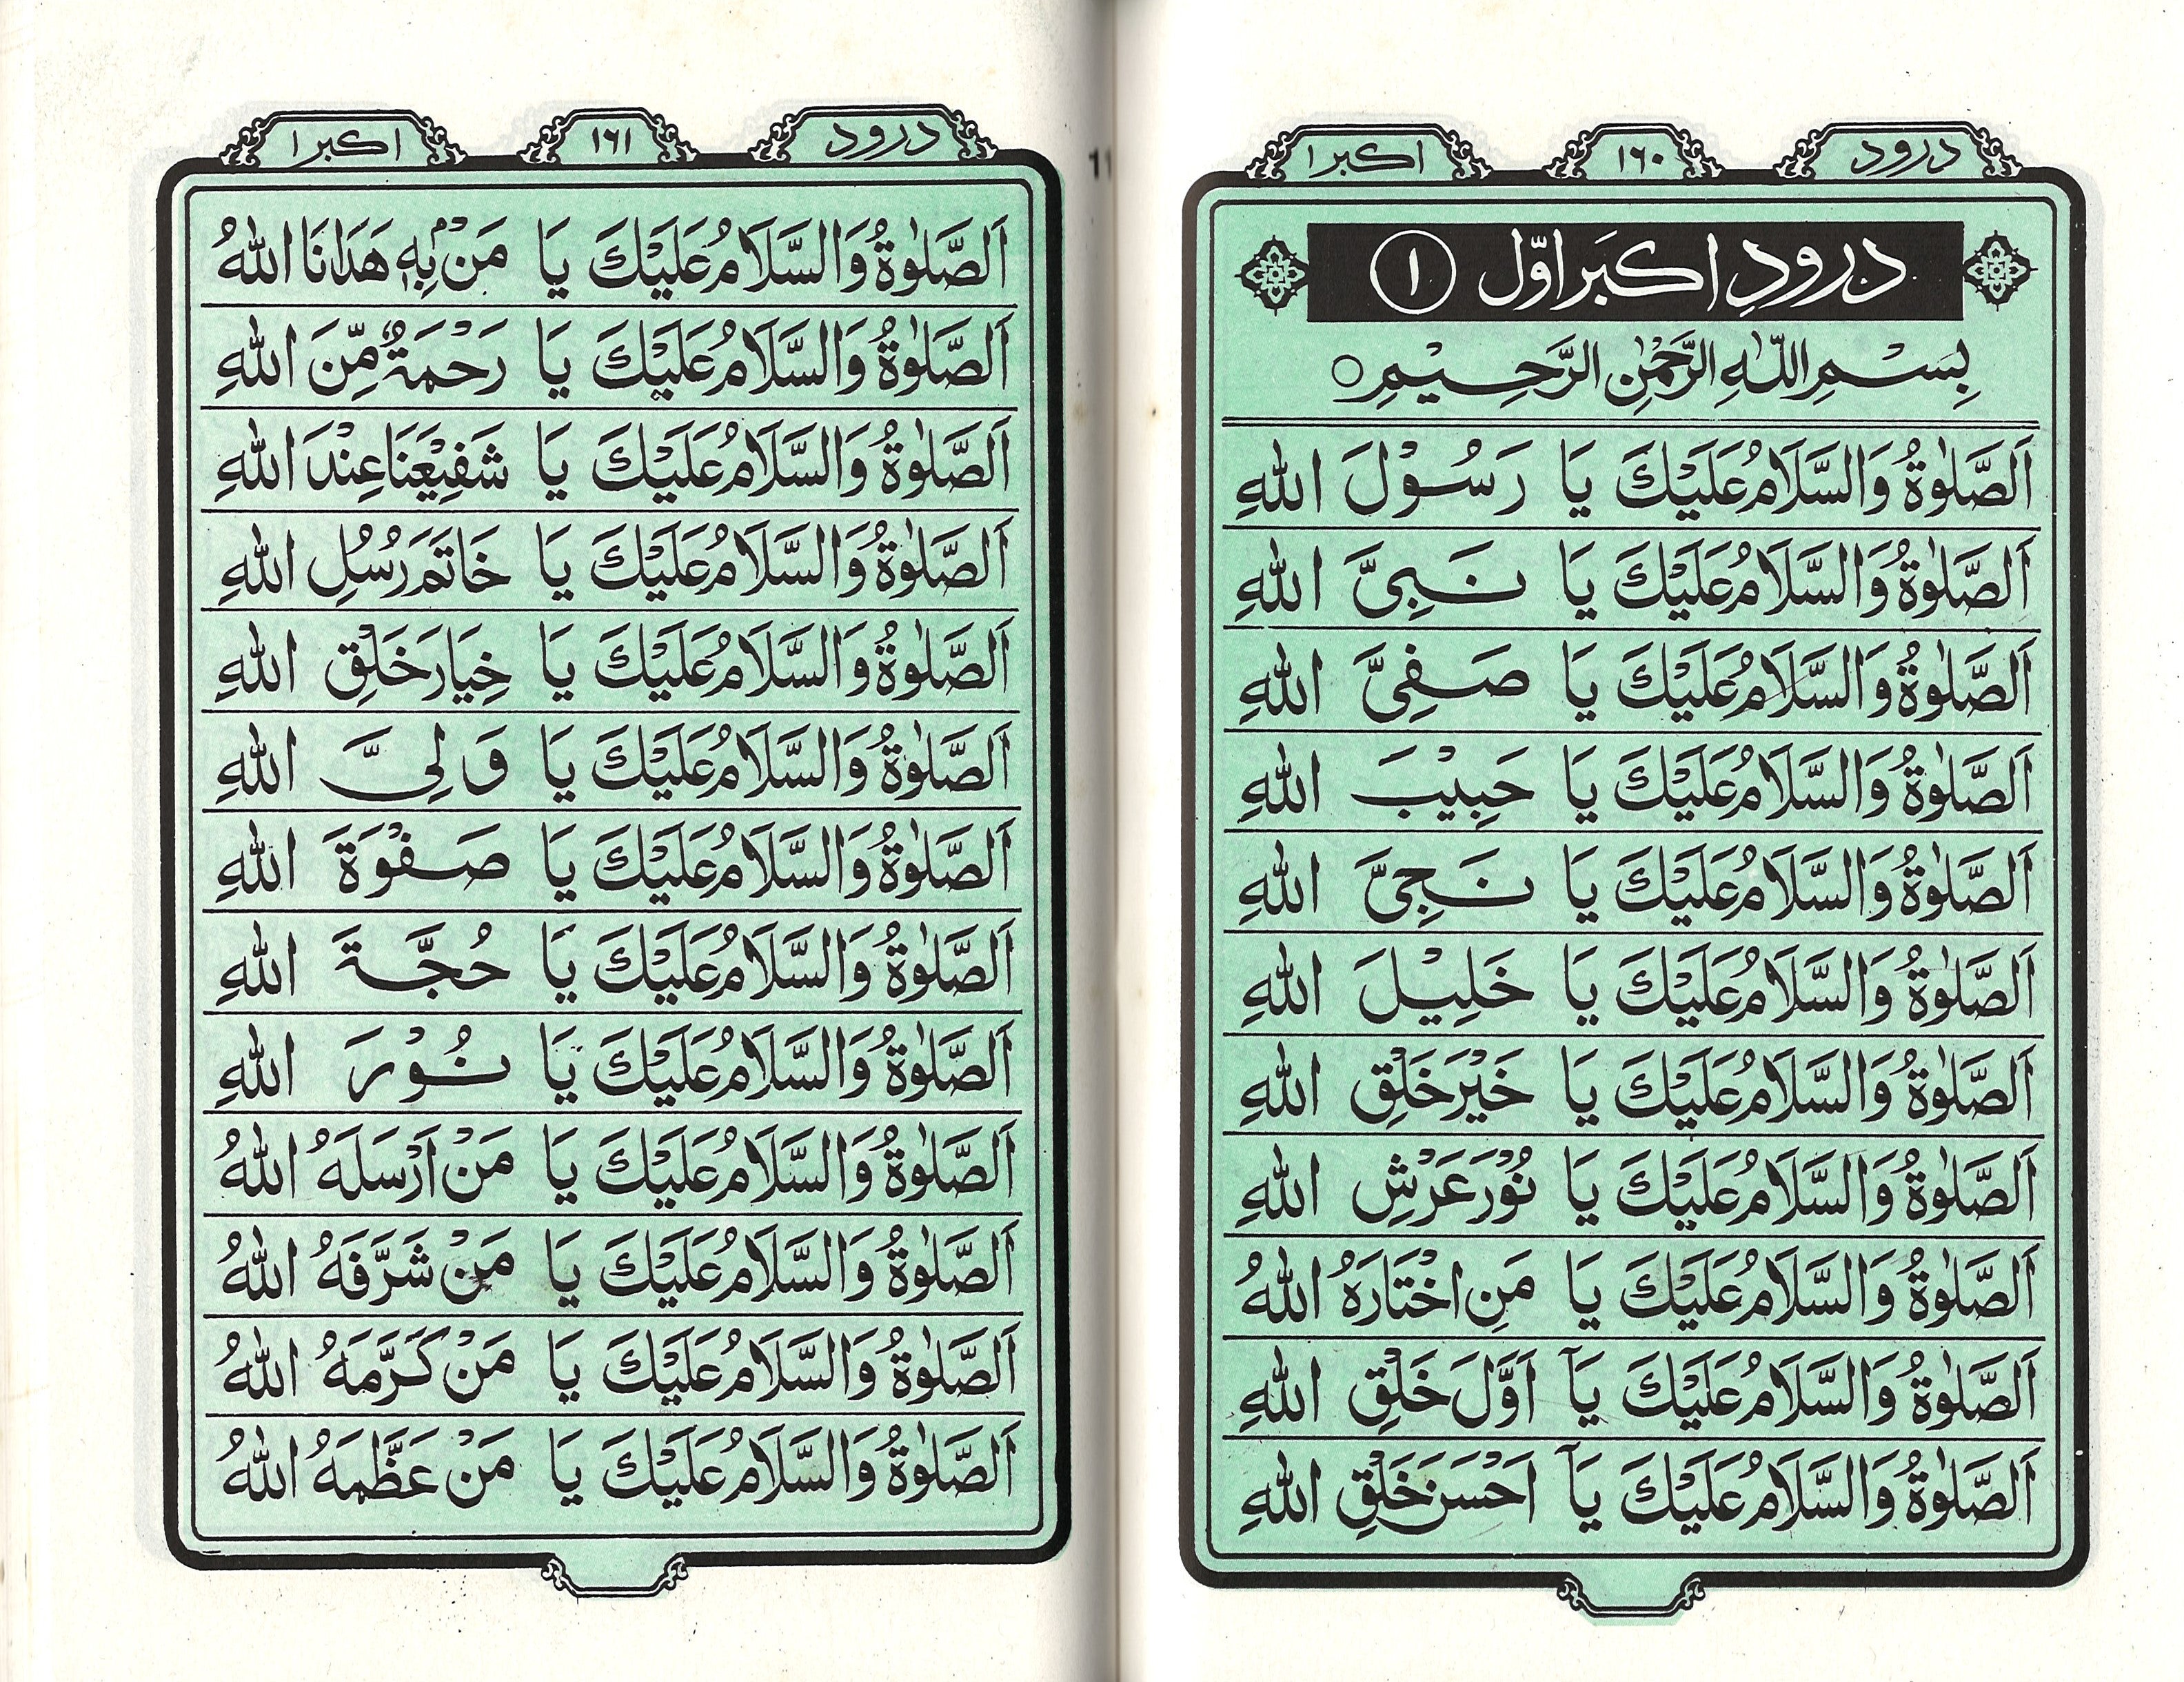 درود ١٦٠ اكبر ١
درودِ اكبَر اوّل ١
بِسْمِ اللّٰهِ الرَّحْمٰنِ الرَّحِيْمِ ○
اَلصَّلٰوةُ وَالسَّلَامُ عَلَيْكَ يَا رَسُوْلَ اللهِ
اَلصَّلٰوةُ وَالسَّلَامُ عَلَيْكَ يَا نَبِىَّ اللهِ
اَلصَّلٰوةُ وَالسَّلَامُ عَلَيْكَ يَا صَفِىَّ اللهِ
اَلصَّلٰوةُ وَالسَّلَامُ عَلَيْكَ يَا حَبِيْبَ اللهِ
اَلصَّلٰوةُ وَالسَّلَامُ عَلَيْكَ يَا نَجِىَّ اللهِ
اَلصَّلٰوةُ وَالسَّلَامُ عَلَيْكَ يَا خَلِيْلَ اللهِ
اَلصَّلٰوةُ وَالسَّلَامُ عَلَيْكَ يَا خَيْرَ خَلْقِ اللهِ
اَلصَّلٰوةُ وَالسَّلَامُ عَلَيْكَ يَا نُوْرَ عَرْشِ اللهِ
اَلصَّلٰوةُ وَالسَّلَامُ عَلَيْكَ يَا مَنِ اخْتَارَهُ اللهُ
اَلصَّلٰوةُ وَالسَّلَامُ عَلَيْكَ يَآ اَوَّلَ خَلْقِ اللهِ
اَلصَّلٰوةُ وَالسَّلَامُ عَلَيْكَ يَآ اَحْسَنَ خَلْقِ اللهِ
درود ١٦١ اكبر ١
اَلصَّلٰوةُ وَالسَّلَامُ عَلَيْكَ يَا مَنْ بِهٖ هَدَانَا اللهُ
اَلصَّلٰوةُ وَالسَّلَامُ عَلَيْكَ يَا رَحْمَةٌ مِّنَ اللهِ
اَلصَّلٰوةُ وَالسَّلَامُ عَلَيْكَ يَا شَفِيْعَنَا عِنْدَ اللهِ
اَلصَّلٰوةُ وَالسَّلَامُ عَلَيْكَ يَا خَاتَمَ رُسُلِ اللهِ
اَلصَّلٰوةُ وَالسَّلَامُ عَلَيْكَ يَا خِيَارَ خَلْقِ اللهِ
اَلصَّلٰوةُ وَالسَّلَامُ عَلَيْكَ يَا وَلِىَّ اللهِ
اَلصَّلٰوةُ وَالسَّلَامُ عَلَيْكَ يَا صَفْوَةَ اللهِ
اَلصَّلٰوةُ وَالسَّلَامُ عَلَيْكَ يَا حُجَّةَ اللهِ
اَلصَّلٰوةُ وَالسَّلَامُ عَلَيْكَ يَا نُوْرَ اللهِ
اَلصَّلٰوةُ وَالسَّلَامُ عَلَيْكَ يَا مَنْ اَرْسَلَهُ اللهُ
اَلصَّلٰوةُ وَالسَّلَامُ عَلَيْكَ يَا مَنْ شَرَّفَهُ اللهُ
اَلصَّلٰوةُ وَالسَّلَامُ عَلَيْكَ يَا مَنْ كَرَّمَهُ اللهُ
اَلصَّلٰوةُ وَالسَّلَامُ عَلَيْكَ يَا مَنْ عَظَّمَهُ اللهُ